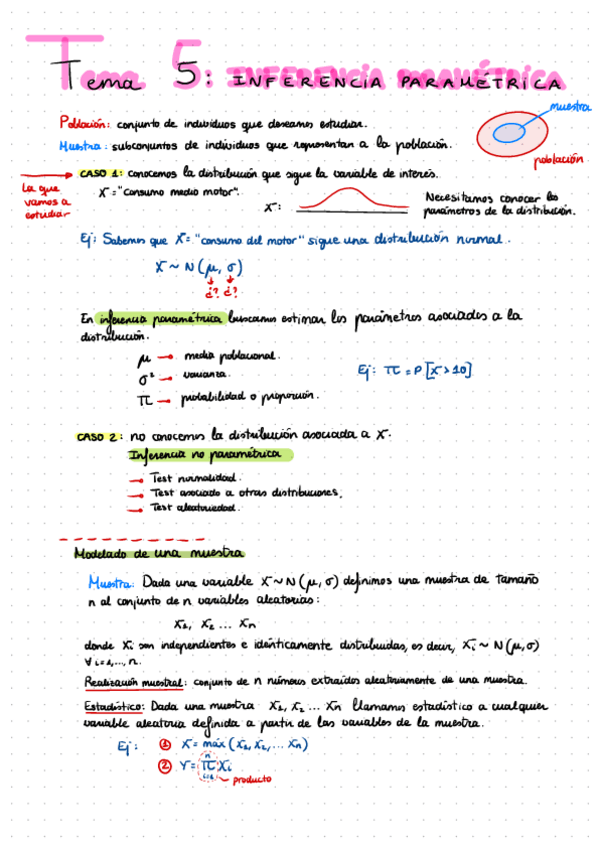 Tema 5: INFERENCIA PARAMÉTRICA
muestra
Población: conjunto de individuos que deseamos estudiar.
Muestra: subconjuntos de individuos que representan a la población.
población
CASO 1: conocemos la distribución que sigue la variable de interés.
La que vamos a estudiar
X = "Consumo medio motor".
X:
Necesitamos conocer los parámetros de la distribución.
Ej: Sabemos que X = "consumo del motor" sigue una distribución normal.
X ~ N (μ, σ)
¿? ¿?
En inferencia paramétrica buscamos estimar los parámetros asociados a la
distribución.
μ → media poblacional.
σ² → varianza.
Ej: π = P [X > 10]
π → probabilidad o proporción.
CASO 2: no conocemos la distribución asociada a X.
Inferencia no paramétrica
→ Test normalidad.
→ Test asociado a otras distribuciones.
→ Test aleatoriedad.
Modelado de una muestra
Muestra: Dada una variable X ~ N (μ, σ) definimos una muestra de tamaño
n al conjunto de n variables aleatorias:
X₁, X₂ ... Xn
donde Xi son independientes e idénticamente distribuidas, es decir, Xi ~ N (μ, σ)
∀ i=1,..., n.
Realización muestral: conjunto de n números extraídos aleatoriamente de una muestra.
Estadístico: Dada una muestra X₁, X₂ ... Xn llamamos estadístico a cualquier
variable aleatoria definida a partir de las variables de la muestra.
Ej: ① X = máx (X₁, X₂, ... Xn)
② Y = π Xi
n
i=1
producto